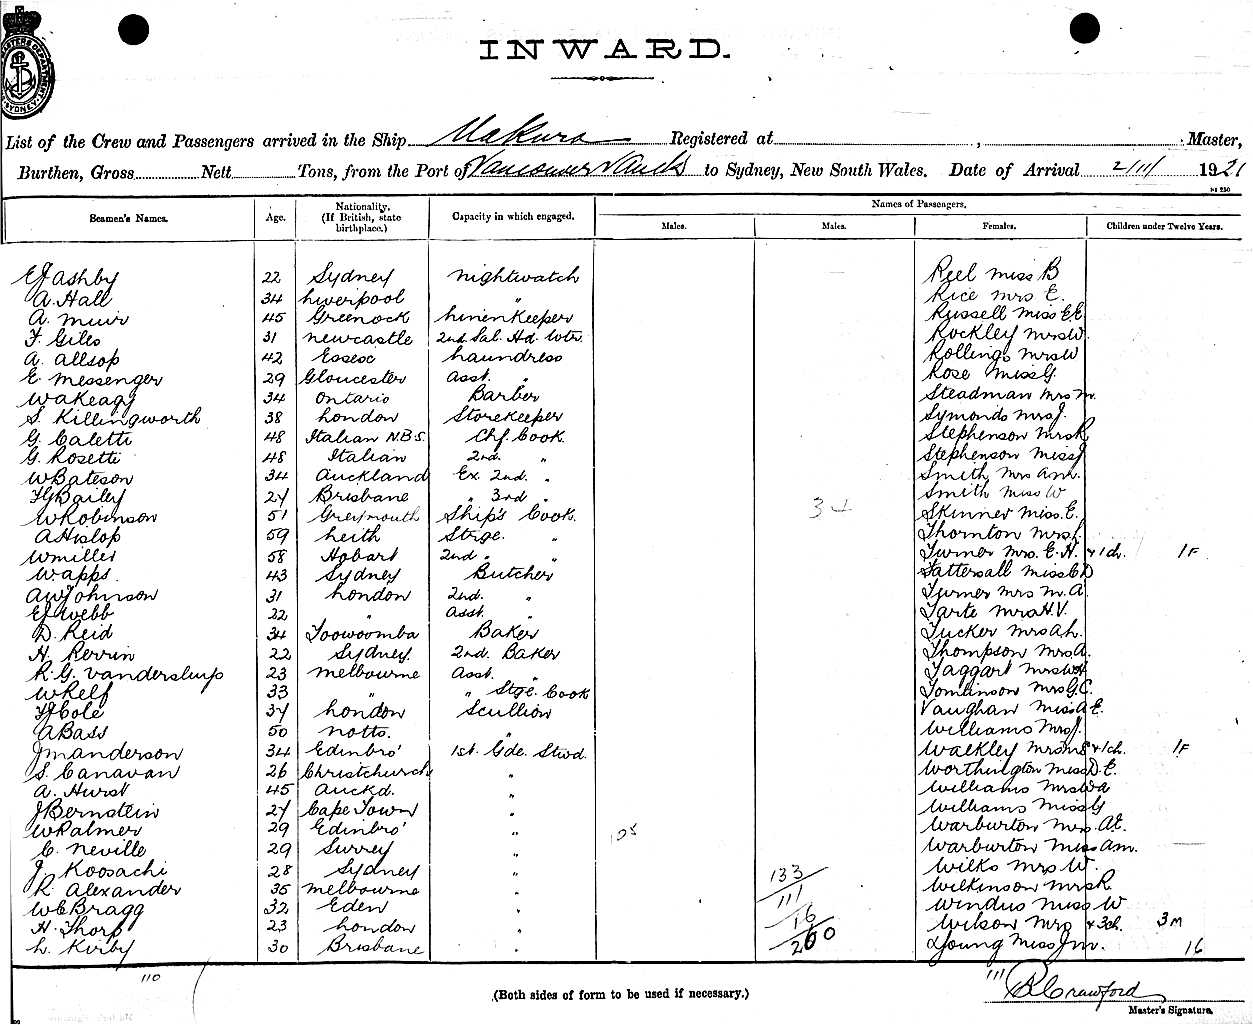 INWARD.
List of the Crew and Passengers arrived in the Ship Makura Registered at , Master,
Burthen, Gross Nett Tons, from the Port of Vancouver V Auck to Sydney, New South Wales. Date of Arrival 2/11/ 1921
Seamen's Names. Age. Nationality. (If British, state birthplace.) Capacity in which engaged. Names of Passengers.
Males. Males. Females. Children under Twelve Years.
EJ Ashby 22 Sydney Nightwatch Reel Miss B
A. Hall 34 Liverpool " Rice Mrs E.
A. Muir 45 Greenock Linenkeeper Russell Miss E.E.
F. Giles 31 Newcastle 2nd Sal. Hd. Wtr. Rockley Mrs W.
A. Allsop 42 Essex Laundress Rollings Mrs W
E. Messenger 29 Gloucester Asst. " Rose Miss G.
W Akeagy 34 Ontario Barber Steadman Mrs M.
S. Killingworth 38 London Storekeeper Symonds Mrs J.
G. Caletti 48 Italian N.B.S. Chf. Cook Stephenson Mrs R
G. Rosetti 48 Italian 2nd. " Stephenson Miss J
W Bateson 34 Auckland Ex 2nd. " Smith Mrs Ann.
Bailey 27 Brisbane " 3rd " Smith Miss W
W Robinson 51 Greymouth Ship's Cook. 34 Skinner Miss. E.
A Hislop 59 Leith Strge. " Thornton Mrs L.
W Miller 58 Hobart 2nd " " Turner Mrs. E.H. & 1ch. 1F
W. Apps. 43 Sydney Butcher Tattersall Miss C D
AW Johnson 31 London 2nd. " Turner Mrs M.A.
EJ Webb 22 " Asst. " Tarte Mrs H.V.
D. Reid 34 Toowoomba Baker Tucker Mrs A.L.
H. Perrin 22 Sydney. 2nd. Baker Thompson Mrs A.
R.G. Vandersluys 23 Melbourne Asst. " Taggart Mrs
W Relf 33 " " Stge. Cook Tomlinson Mrs G.C.
Cole 37 London Scullion Vaughan Miss A.E.
A Bass 50 Notts. " Williams Mrs J.
J M Anderson 34 Edinbro' 1st. Gde. Stwd. Walkley Mrs & 1ch. 1F
S. Canavan 26 Christchurch " Worthington Miss D.E.
A. Hurst 45 Auckd. " Williams Mrs
J Bernstein 27 Cape Town " Williams Miss G
W Palmer 29 Edinbro' " Warburton Mrs. A.E.
C. Neville 29 Surrey " Warburton Miss Am.
J. Koosachi 28 Sydney " 133 Wilks Mrs W.
R. Alexander 35 Melbourne " 111 Wilkinson Mrs R
W C Bragg 32 Eden " 16 Windus Miss W
H. Thorp 23 London " 260 Wilson Mrs & 3ch. 3M
L. Kirby 30 Brisbane " Young Miss J M. 16
110
111
R Crawford
(Both sides of form to be used if necessary.)
Master's Signature.